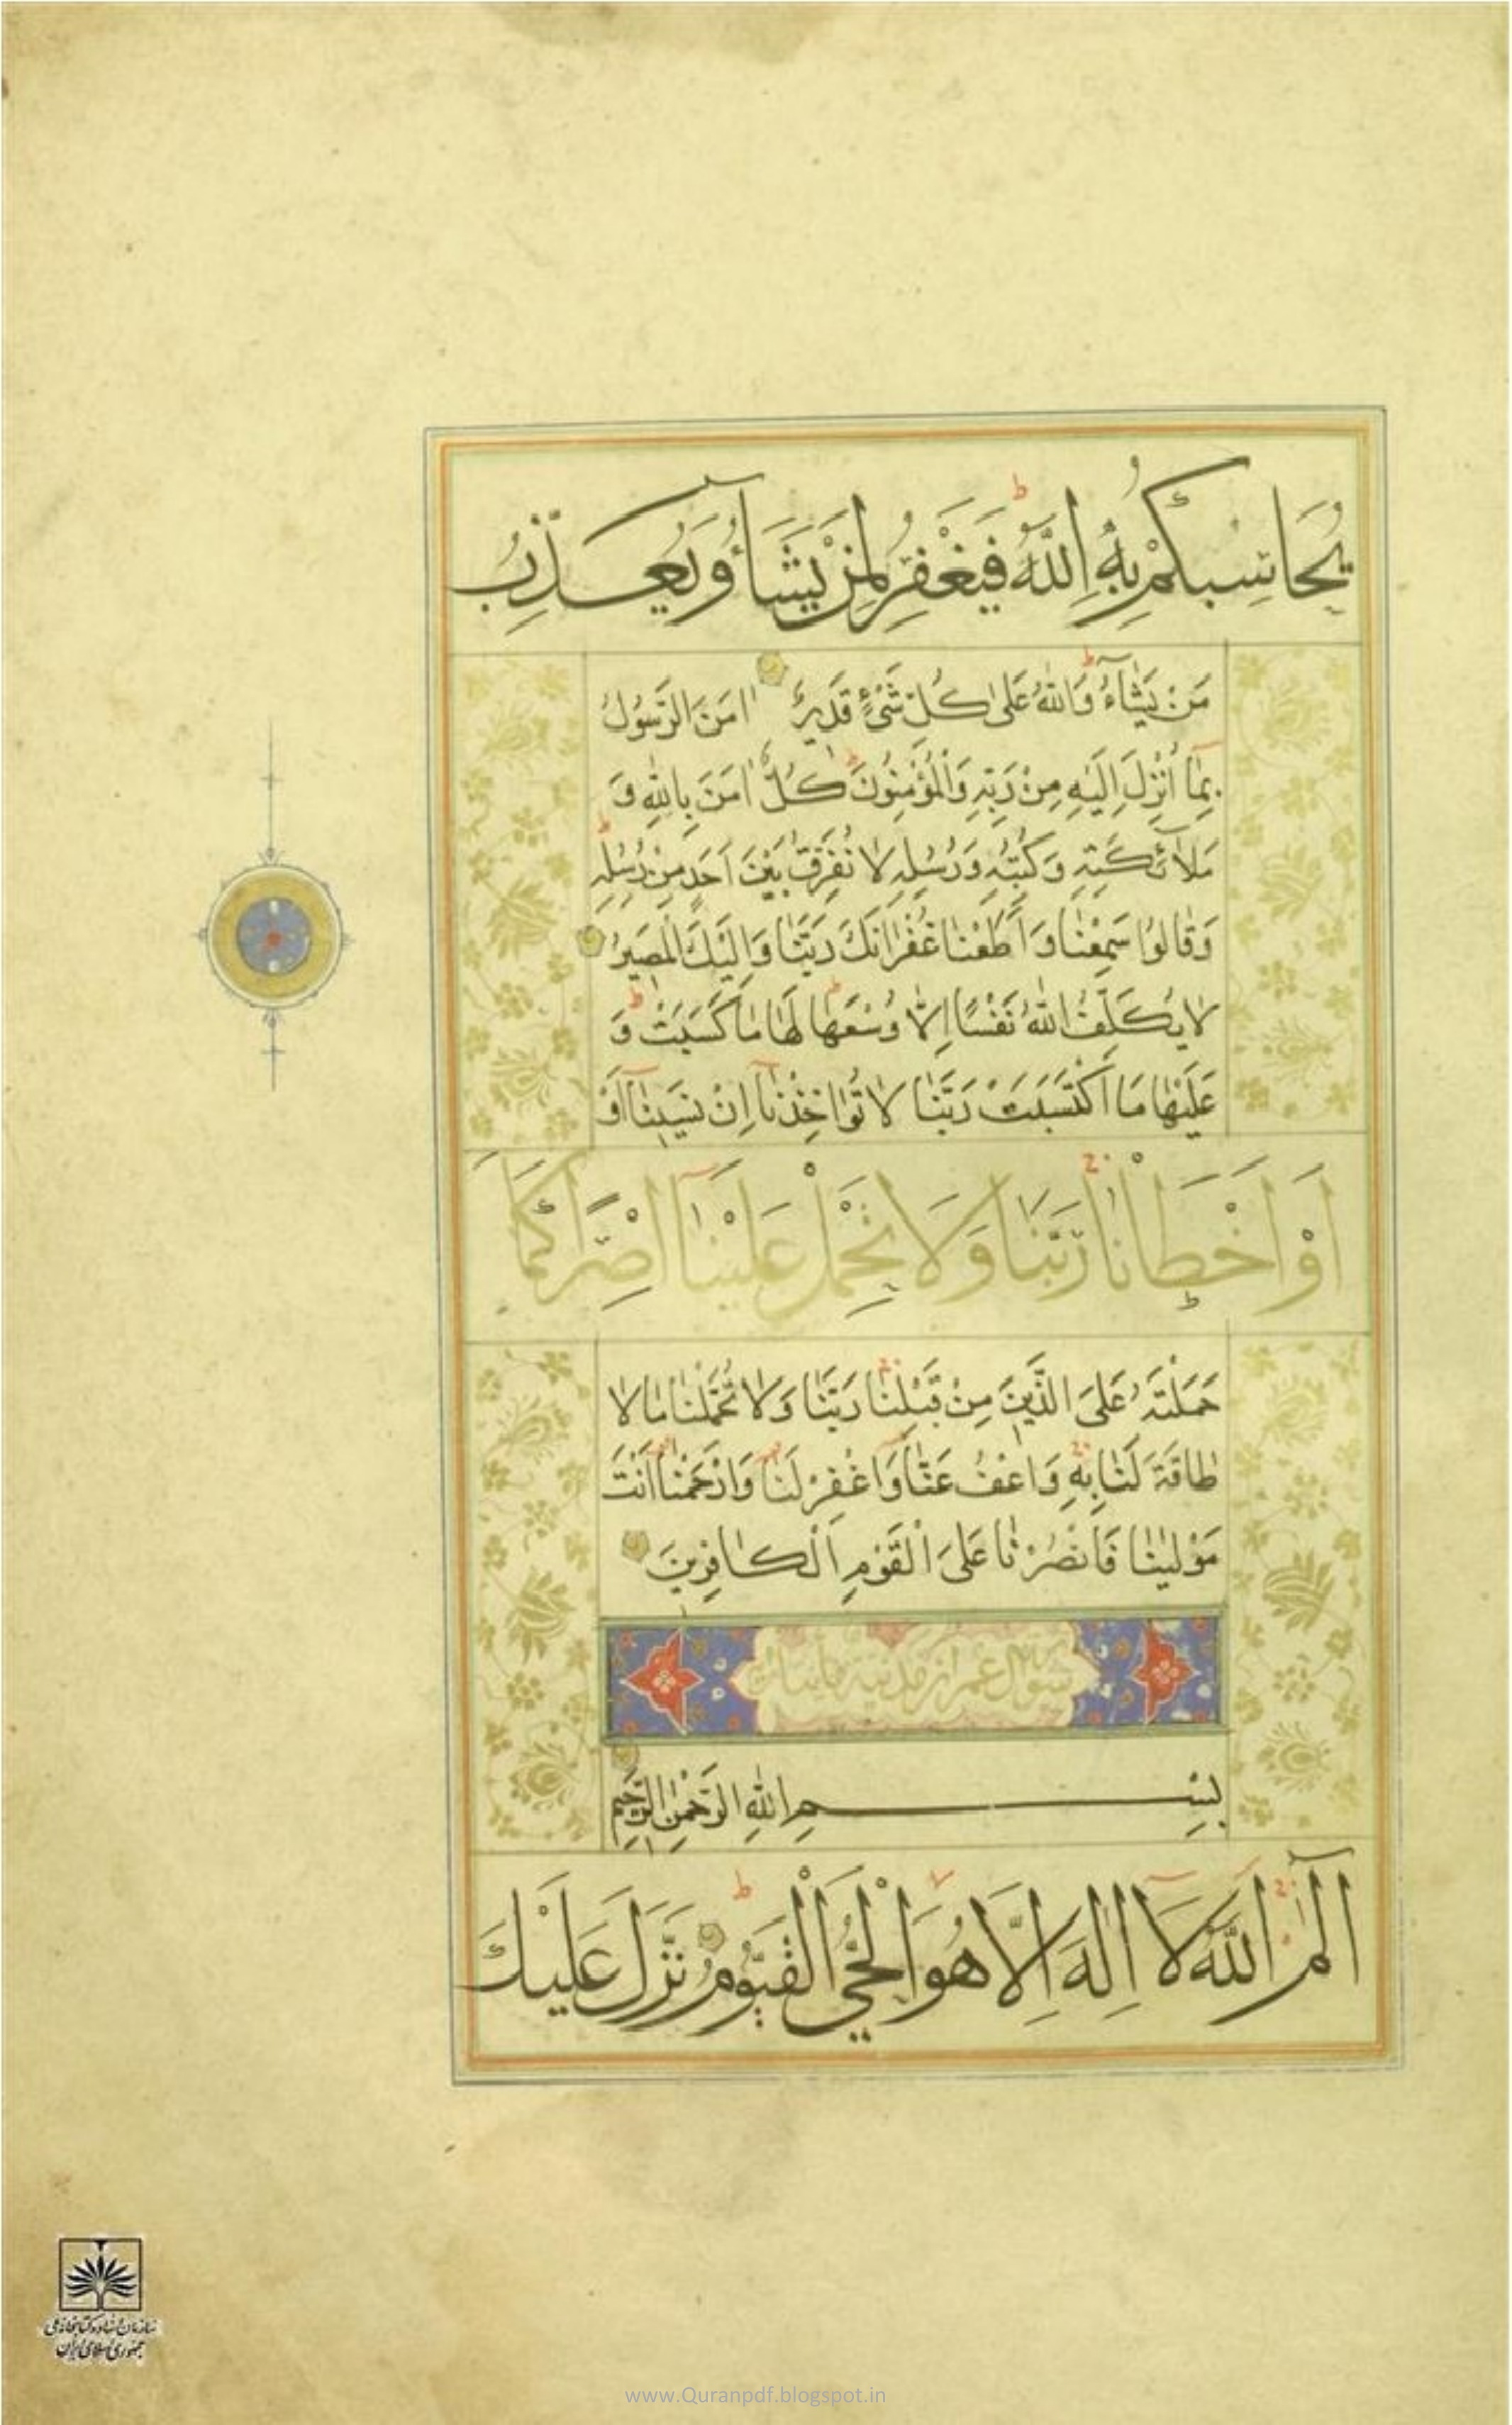 يُحَاسِبْكُمْ بِهِ اللَّهُ فَيَغْفِرُ لِمَنْ يَشَآءُ وَيُعَذِّبُ
مَنْ يَشَآءُ وَاللّٰهُ عَلٰى كُلِّ شَىْءٍ قَدِيرٌ اٰمَنَ الرَّسُولُ
بِمَا اُنْزِلَ اِلَيْهِ مِنْ رَبِّهِ وَالْمُؤْمِنُونَ كُلٌّ اٰمَنَ بِاللّٰهِ وَ
مَلَائِكَتِهِ وَكُتُبِهِ وَرُسُلِهِ لَا نُفَرِّقُ بَيْنَ اَحَدٍ مِنْ رُسُلِهِ
وَقَالُوا سَمِعْنَا وَاَطَعْنَا غُفْرَانَكَ رَبَّنَا وَاِلَيْكَ الْمَصِيرُ
لَا يُكَلِّفُ اللّٰهُ نَفْسًا اِلَّا وُسْعَهَا لَهَا مَا كَسَبَتْ وَ
عَلَيْهَا مَا اكْتَسَبَتْ رَبَّنَا لَا تُؤَاخِذْنَا اِنْ نَسِينَا اَوْ
اَوْ اَخْطَانَا رَبَّنَا وَلَا تَحْمِلْ عَلَيْنَا اِصْرًا كَمَا
حَمَلْتَهُ عَلَى الَّذِينَ مِنْ قَبْلِنَا رَبَّنَا وَلَا تُحَمِّلْنَا مَا لَا
طَاقَةَ لَنَا بِهِ وَاعْفُ عَنَّا وَاغْفِرْ لَنَا وَارْحَمْنَا اَنْتَ
مَوْلٰينَا فَانْصُرْنَا عَلَى الْقَوْمِ الْكَافِرِينَ
عمران مدنية
بِسْمِ اللّٰهِ الرَّحْمٰنِ الرَّحِيمِ
الٓمٓ اللَّهُ لَا اِلٰهَ اِلَّا هُوَ الْحَيُّ الْقَيُّومُ نَزَّلَ عَلَيْكَ
سازمان اسناد و کتابخانه ملی
جمهوری اسلامی ایران
www.Quranpdf.blogspot.in